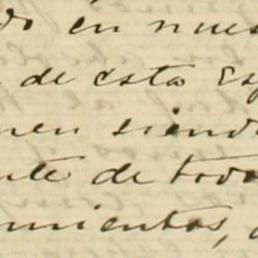 do en nues
de esta Es
nen siendo
te de todo
mientos,